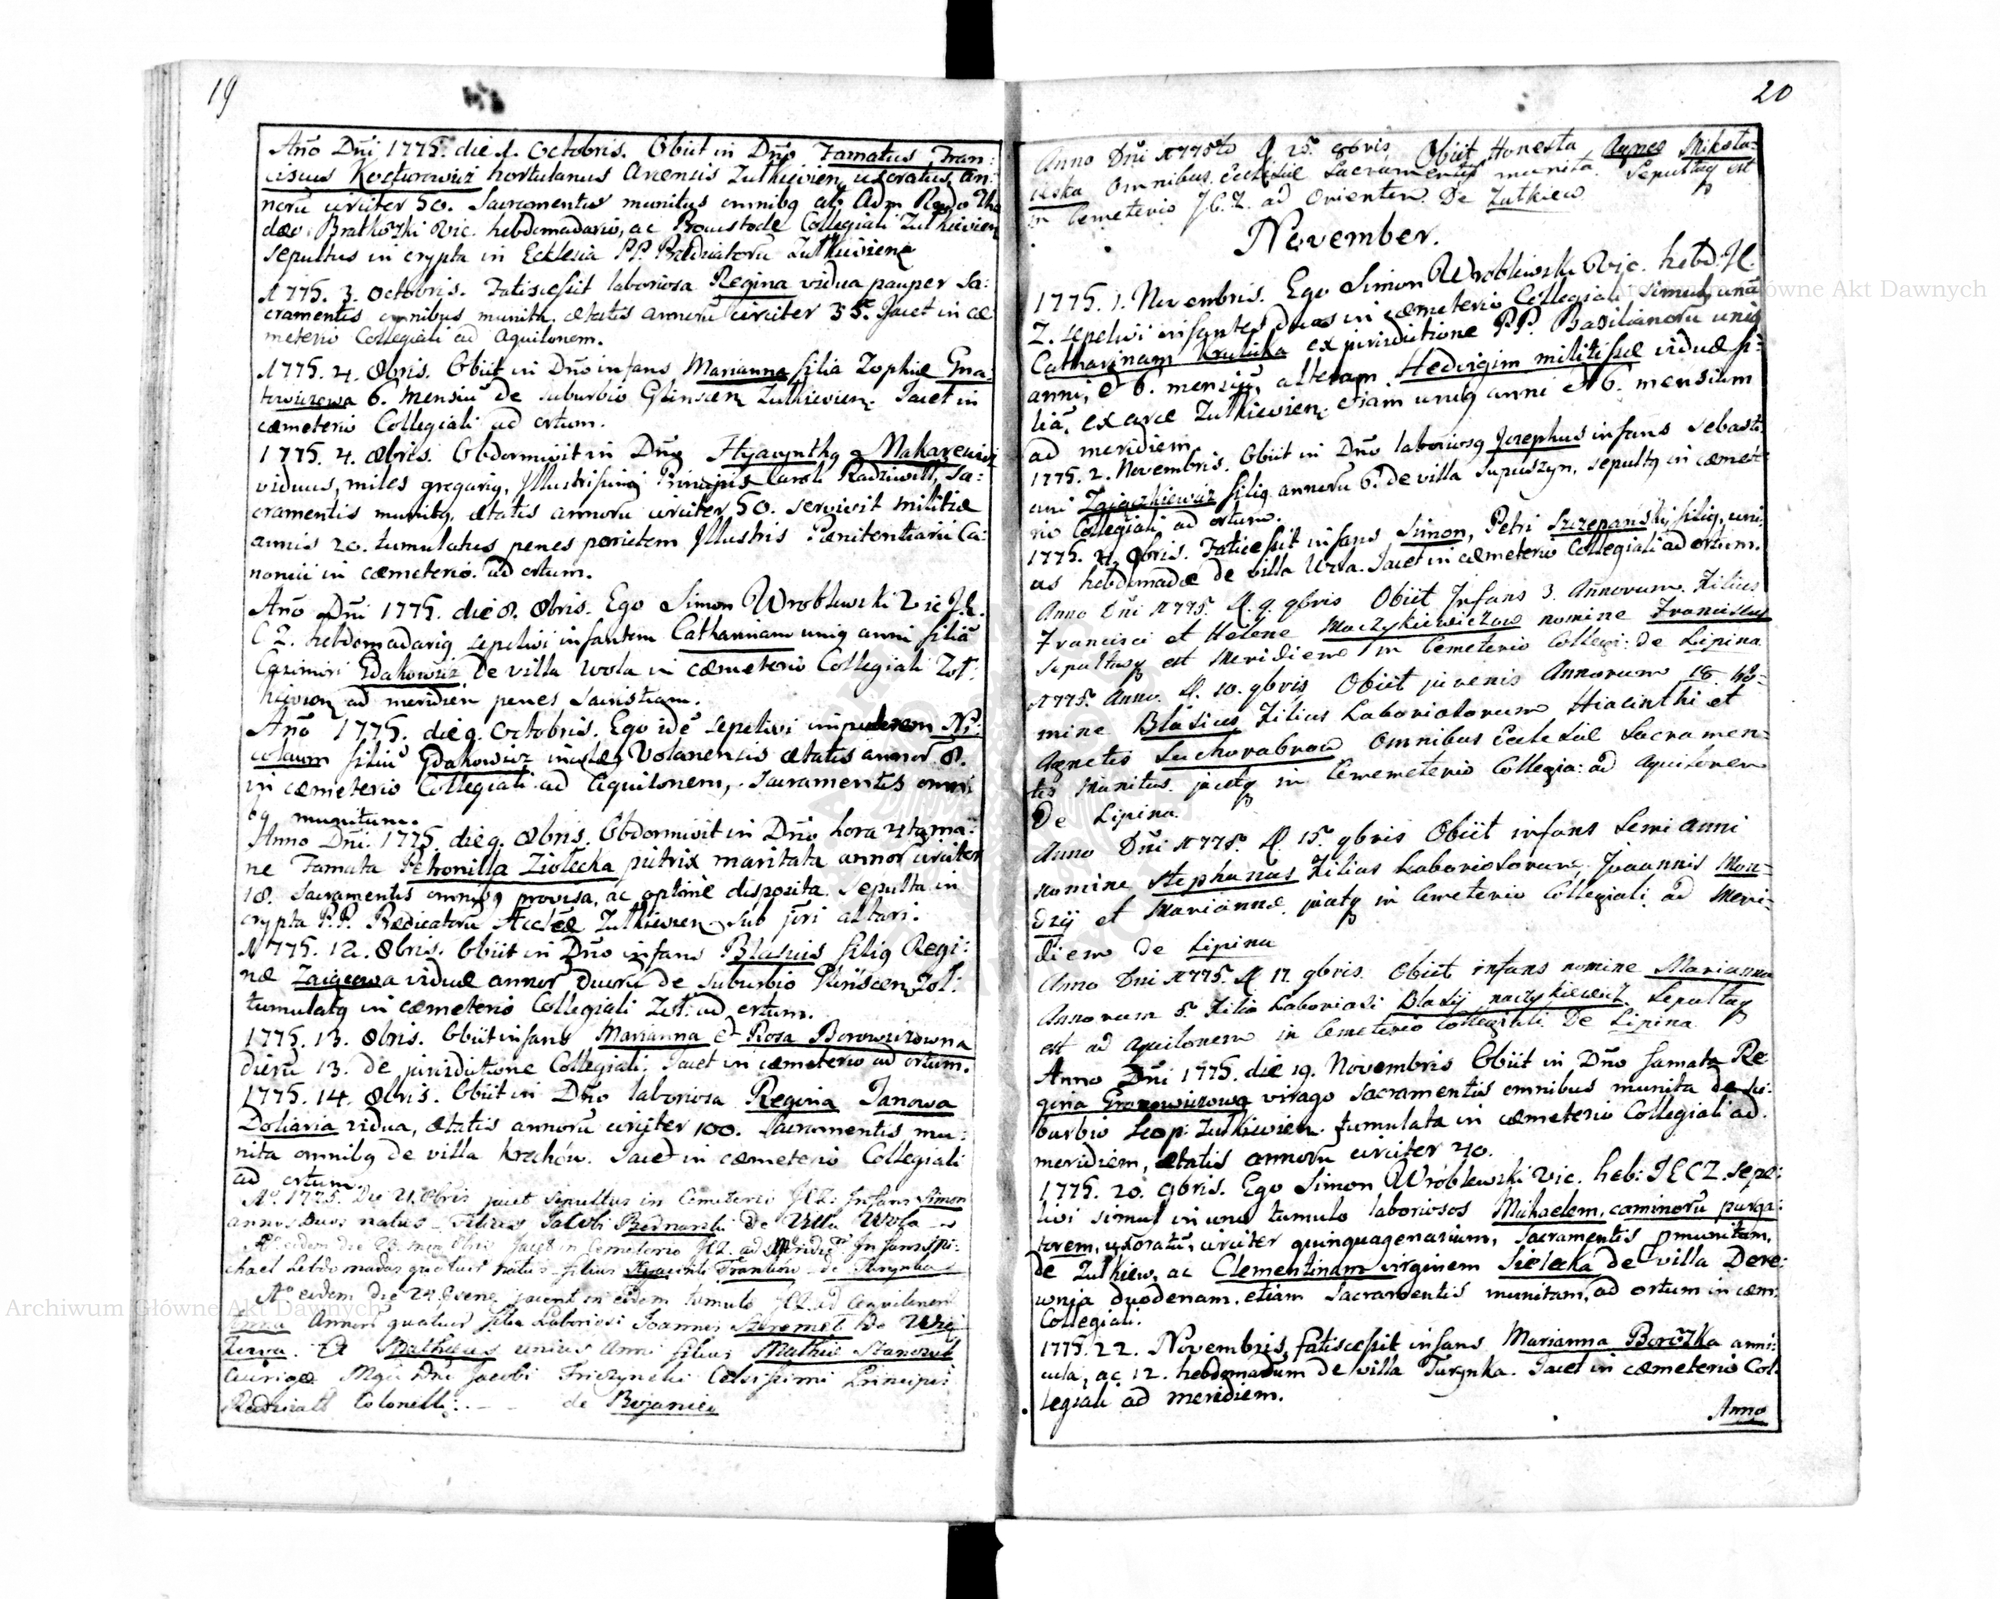 19
Año Dñi 1775. die 1. Octobris. Obiit in Dño Famatus Fran:
ciscus hortulanus Arcensis Zulkievien, uxoratus, an:
noru circiter 50. Sacramentis munitus omnibq ab Adm Rndo Tha
dæo Vic. hebdomadario, ac Collegiali Zulkievien
sepultus in crypta in Ecclesia P.P. Prædicatoru Zulkiviene
1775. 3. Octobris. Fatiscessit laboriosa Regina vidua pauper Sa:
cramentis omnibus munita. ætatis annoru circiter 35. Jacet in cæ
meterio Collegiali ad Aquilonem.
1775. 4. 8bris. Obiit in Dño infans Marianna filia Zophiæ Gna:
towiczowa 6. Mensiu de suburbio Glinscen Zulkievien. Jacet in
cæmeterio Collegiali ad ortum.
1775. 4. 8bris. Obdormivit in Dño Hyacynthq Makarewicz
viduus, miles gregariq, Illustrissimi Principis Caroli Radziwill, Sa:
cramentis munitq, ætatis annoru circiter 50. servivit militiæ
annis 20. tumulatus penes parietem Illustris Pænitentiarii Ca:
nonici in cæmeterio. ad ortum.
Año Dñi 1775. die 8. 8bris. Ego Simon Wroblewski Vic J.E.
C Z. hebdomadariq sepelivi infantem Catharinam uniq anni filiã
Casimiri Gdakowicz de villa Wola in cæmeterio Collegiali Zol:
kievien ad meridien penes Sacristiam.
Año 1775. die 9. Octobris. Ego idê sepelivi impuberem Ni:
colaum filiu Gdakowicz Volanensis ætatis annor 8.
in cæmeterio Collegiali ad Aquilonem, Sacramentis omni
bq munitum.
Anno Dñi. 1775. die 9. 8bris. Obdormivit in Dño hora 4ta ma:
ne Famata Petronilla Ziolecka pictrix maritata annor circiter
18. Sacramentis omnibq provisa, ac optime disposita. Sepulta in
crypta P.P. Prædicatoru Zulkievien sub altari.
1775. 12. 8bris. Obiit in Dño infans Blasius filiq Regi:
næ Zaigcowa viduæ annor duoru de suburbio Zol:
tumulatq in cæmeterio Collegiali Zol: ad ortum.
1775. 13. 8bris. Obiit infans Marianna et Rosa Borowiczowna
dieru 13. de jurisdictione Collegiali. Jacet in cæmeterio ad ortum.
1775. 14. 8bris. Obiit in Dño laboriosa Regina Janowa
Doliaria vidua, ætatis annoru circiter 100. Sacramentis mu:
nita omnibq de villa Krechow. Jacet in cæmeterio Collegiali
ad ortum.
Aº. 1775. Die 21. 8bris jacet sepultus in Cemeterio JCZ: Infans Simon
annos duos natus Filius Jacobi Bednarski de Villa Wola
Aº eidem die 23. jacet in Cemeterio JCZ. ad Infans Mi:
chael hebdomadas quatuor natus filius Hyacinti de Turynka
Aº eidem die jacent in eodem tumulo JCZ. ad Aquilonem
Anna Annoru quatuor filia Laboriosi Joannis Szeremet de
Et Mathæus unius Anni filius Mathiæ
Aurigæ Mgci Dñi Jacobi Celsissimi Principis
Radziwill Colonelli: - - de Bojaniec
20
Anno Dñi 1775to D. 25. 8bris Obiit Honesta Agnes Miksta:
lska omnibus Ecclesiæ Sacramentis munita. Sepultaq est
in Cemeterio J.C.Z. ad Orientem. De Zulkiew
November.
1775. 1. Novembris. Ego Simon Wroblewski Vic. hebd. JC
Z. sepelivi infantes duas in cæmeterio Collegiali simul, unã
Catharinam Krulicka ex jurisdictione P.P. Basilianoru uniq
anni, et 6. mensiu, alteram Hedvigim militissæ viduæ fi:
liã, ex arce Zulkievien, etiam uniq anni et 6. mensium
ad meridiem
1775. 2. Novembris. Obiit in Dño laboriosq Jozephus infans Sebasti:
ani Zaigczkiewicz filiq annoru 6. de villa Supuszyn, sepultq in cæmete:
rio Collegiali ad ortum.
1775. 4. 9bris. Fatiscessit infans Simon, Petri Szczepanski filiq, uni:
us hebdomadæ de villa Wola. Jacet in cæmeterio Collegiali ad ortum.
Anno Dñi 1775. D. 9. 9bris Obiit Infans 3. Annorum. Filius
Francisci et Helene Maczykiewiczow nomine Franciscus
Sepultusq est Meridiem in Cemeterio Collegi: de Lipina
1775. Anno. D. 10. 9bris Obiit juvenis Annorum 18. No=
mine Blasius Filius Laboriosorum Hiacinthi et
Agnetis Suchorabrow Omnibus Ecclesiæ Sacramen=
tis Munitus. jacetq in Cemeterio Collegia: ad Aquilonem
De Lipina.
Anno Dñi 1775. D. 15. 9bris Obiit infans Semi anni
nomine Stephanus Filius Laboriosorum, Joannis Mon=
dzij et Mariannæ, jacetq in Cemeterio Collegiali ad Meri=
diem de Lipina
Anno Dñi 1775. D 17. 9bris. Obiit infans nomine Marianna
Annorum 5. Filia Laboriosi Blasij Naczykiewicz. Sepultaq
est ad Aquilonem in Cemeterio Collegiali. De Lipina.
Anno Dñi 1775. die 19. Novembris Obiit in Dño famata Re
gina Gronowiczowa virago Sacramentis omnibus munita de su:
burbio Leop: Zulkievien. tumulata in cæmeterio Collegiali ad
meridiem, ætatis annoru circiter 40.
1775. 20. 9bris. Ego Simon Wroblewski Vic. heb: JECZ. Sepe:
livi simul in uno tumulo laboriosos Michaelem, caminoru purga:
torem, uxoratu, circiter quinquagenarium, Sacramentis præmunitum,
de Zulkiew, ac Clementinam virginem Sielecka de villa Dere:
wnia duodenam, etiam Sacramentis munitam, ad ortum in cæm:
Collegiali.
1775. 22. Novembris, fatiscessit infans Marianna Boroszka anni:
cula, ac 12. hebdomadum de villa Turynka. Jacet in cæmeterio Col:
legiali ad meridiem.
Anno
Archiwum Główne Akt Dawnych
Archiwum Główne Akt Dawnych